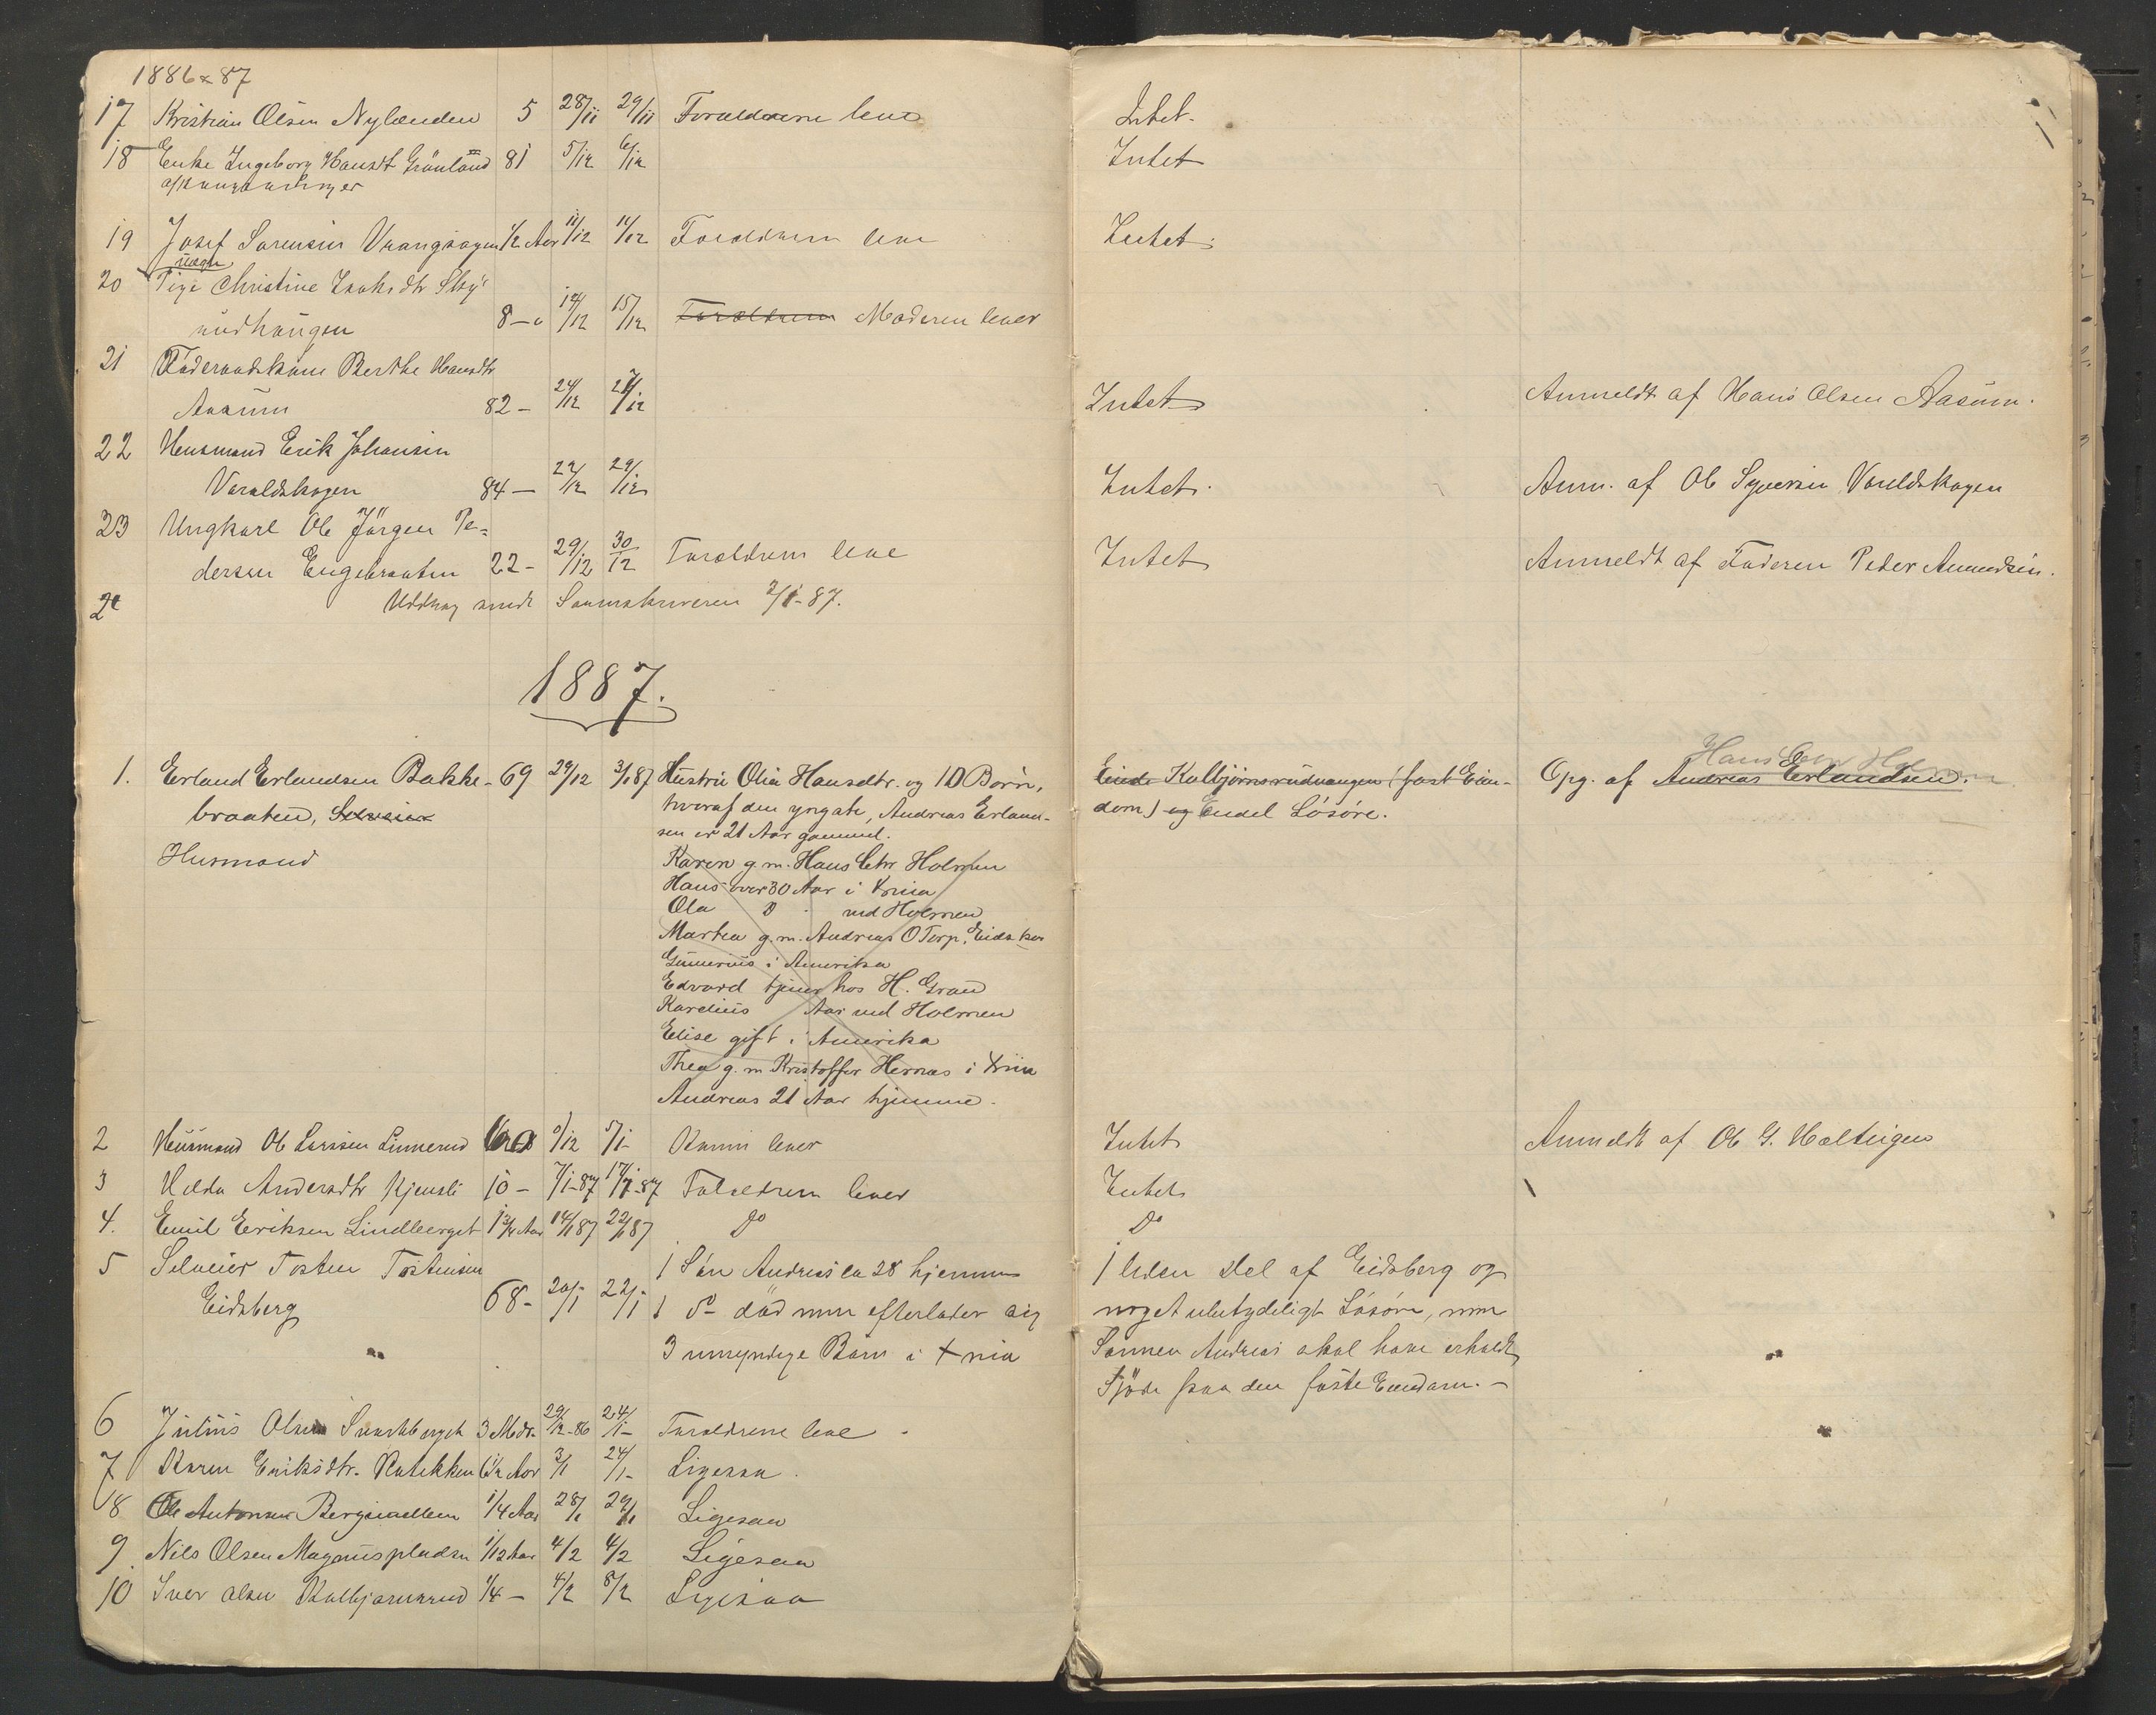 1886 & 87
17 Kristian Olsen Nylænden 5 28/11 29/11 Forældrene leve Intet.
18 Enke Ingeborg Hansdt Grönland 81 5/12 6/12 Intet
19 Josef Sorensen Vrangsagen 1/2 Aar 11/12 11/12 Forældrene leve Intet.
ugift
20 Pige Christine Isaksdtr Sky
rudhaugen 8 - 12/12 15/12 Forældrene Moderen lever
21 Föderaadskone Berthe Hansdtr
Aasum 82 - 24/12 27/12 Intet Anmeldt af Hans Olsen Aasum.
22 Husmand Erik Johansen
Varaldskogen 84 - 22/12 29/12 Intet. Anm. af Ole Syversen Varaldskogen
23 Ungkarl Ole Jörgen Pe=
dersen Engebraaten 22 - 29/12 30/12 Forældrene leve Intet Anmeldt af Faderen Peder Amundsen.
24 Uddrag sendt Sorenskriveren 2/1-87.
1887.
Hans Chr Holmen
1. Erland Erlandsen Bakke- 69 29/12 3/1 87 Hustru Olia Hansdtr. og 10 Börn, Eiede Kolbjörnsrudvangen (fast Eien- Opg. af Andreas Erlandsen.
braaten, Selveier hvoraf den yngste, Andreas Erland- dom) og Endel Lösöre.
sen er 21 Aar gammel.
Husmand Karen g.m. Hans Chr Holmen
Hans over 30 Aar i Xnia
Ola D ved Holmen
Martea g.m. Andreas O Torp, Eidskog
Gunerius i Amerika
Edvard tjener hos H. Grau
Karelius Aar ved Holmen
Elise gift i Amerika
Thea g.m Kristoffer Hernæs i Xnia
Andreas 21 Aar hjemme.
2 Husmand Ole Larssen Linnerud /12 5/1 Konen lever Intet Anmeldt af Ole G. Holteigen
3 Hilda Andersdtr Kjensli 10 - 7/1-87 17/1-87 Forældrene lever Intet
4. Emil Eriksen Lindberget 1 3/4 Aar 14/1 87 22/1 87 Do Do
5 Selveier Tosten Tostensen 1 Sön Andreas ca 28 hjemme 1 liden Del af Eidsberg og
Eidsberg 68 - 20/1 22/1 1 do död men efterlader sig noget ubetydeligt Lösöre, men
3 umyndige Börn i Xnia Sönnen Andreas skal have erholdt
Skjöde paa den faste Eiendom. -
6 Julius Olsen Svartberget 3 Mdr. 29/12-86 24/1- Forældrene leve
7 Karen Eriksdtr. 1/2 Aar 3/1 24/1- Ligesaa.
8 Ole Antonsen 1/4 Aar 28/1 29/1 Ligesaa
9 Nils Olsen Magnuspladsen 1/12 Aar 4/2 4/2 Ligesaa
10 Iver Olsen Kolbjörnsrud 1/4 - 4/2 8/2 Ligesaa